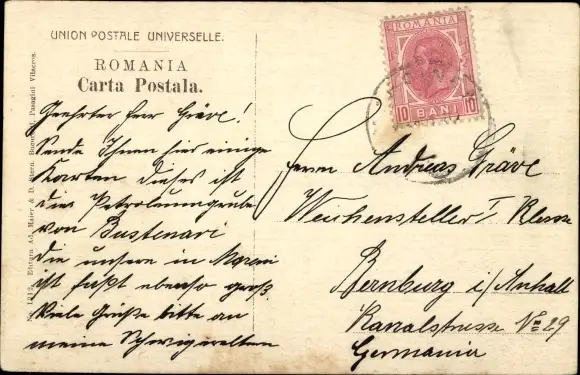 UNION POSTALE UNIVERSELLE.
ROMANIA
Carta Postala.
Geehrter Herr Gräve!
Sende Ihnen hier einige
Karten dieses ist
die Petroleumgrube
von Bustenari
die unsere in Moreni
ist faßt ebenso groß.
Viele Grüße bitte an
meine Schwigereltern
ROMANIA
10 BANI 10
Herrn Andreas Gräve
Weichensteller I Klasse
Bernburg i/Anhalt
Kanalstrasse No 29
Germania
Editura Ad. Maier & D. Stern, Pasagiul Villacros.